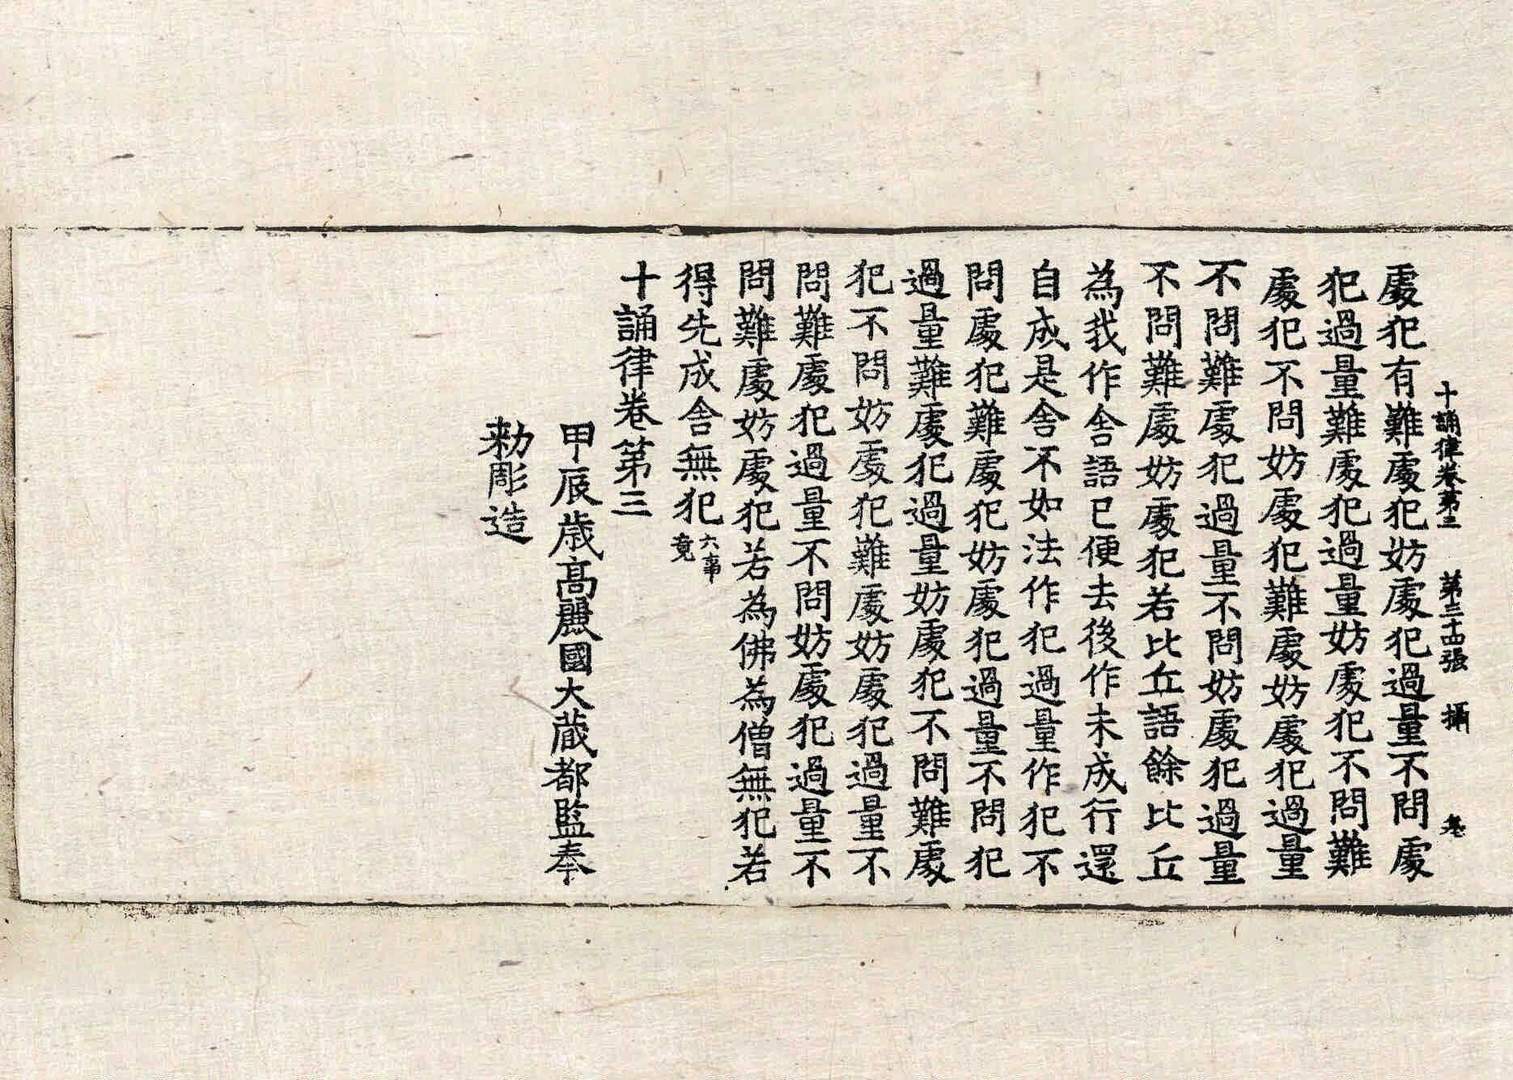 十誦律卷第三 第三十四張 攝
處犯有難處犯妨處犯過量不問處
犯過量難處犯過量妨處犯不問難
處犯不問妨處犯難處妨處犯過量
不問難處犯過量不問妨處犯過量
不問難處妨處犯若比丘語餘比丘
為我作舍語已便去後作未成行還
自成是舍不如法作犯過量作犯不
問處犯難處犯妨處犯過量不問犯
過量難處犯過量妨處犯不問難處
犯不問妨處犯難處妨處犯過量不
問難處犯過量不問妨處犯過量不
問難處妨處犯若為佛為僧無犯若
得先成舍無犯六事竟
十誦律卷第三
甲辰歲高麗國大藏都監奉
勅彫造